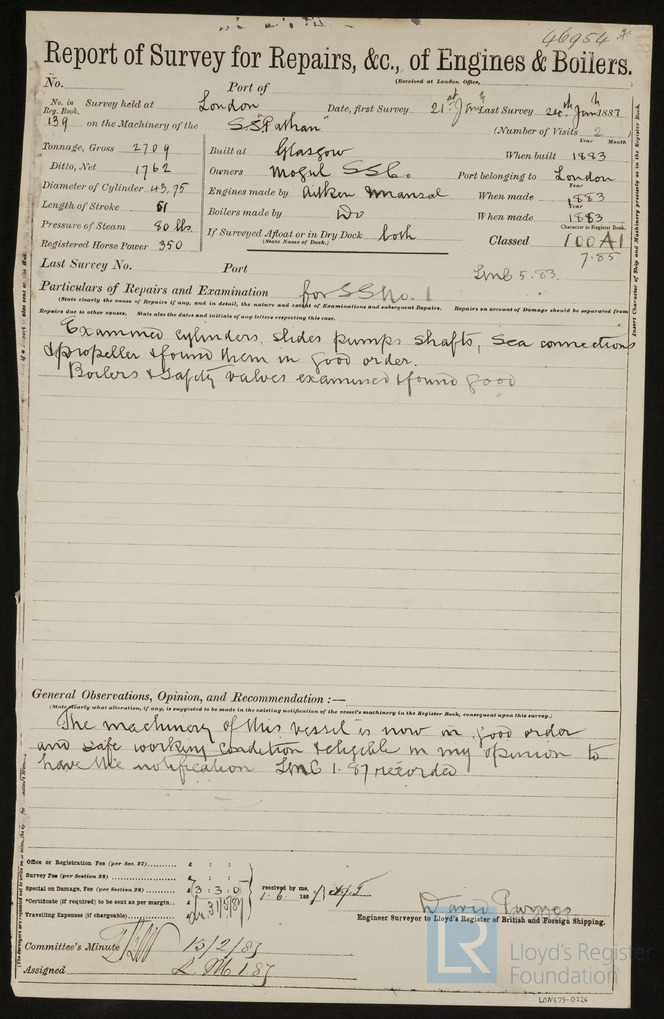 46954
Report of Survey for Repairs, &c., of Engines & Boilers.
(Received at London Office,
No. Port of
No. in Reg. Book. Survey held at London Date, first Survey 21st Jany Last Survey 24th Jany 1887
139 on the Machinery of the S.S "Pathan" (Number of Visits 2)
Year Month
Tonnage, Gross 2709 Built at Glasgow When built 1883
Ditto, Net 1762 Owners Mogul SS Co. Port belonging to London
Diameter of Cylinder 43,75 Engines made by Aitken Mansal When made 1883
Year
Length of Stroke 51 Boilers made by Do When made 1883
Year
Pressure of Steam 80 lbs If Surveyed Afloat or in Dry Dock both Classed 100A1
(State Name of Dock.) Character in Register Book.
Registered Horse Power 350 7.85
Last Survey No. Port LMC 5.83.
Particulars of Repairs and Examination for SS No. 1
(State clearly the cause of Repairs if any, and in detail, the nature and extent of Examinations and subsequent Repairs. Repairs on account of Damage should be separated from
Repairs due to other causes. State also the dates and initials of any letters respecting this case.
Examined cylinders, slides pumps shafts, sea connections
& propeller & found them in good order.
Boilers & safety valves examined & found good
General Observations, Opinion, and Recommendation :—
(State clearly what alteration, if any, is suggested to be made in the existing notification of the vessel's machinery in the Register Book, consequent upon this survey.)
The machinery of this vessel is now in good order
and safe working condition & eligible in my opinion to
have the notification LMC 1.87 recorded
Office or Registration Fee (per Sec. 27)......... £ : :
Survey Fee (per Section 28) ......... £ : :
Special on Damage, Fee (per Section 28) ......... £ 3 : 3 : 0 received by me,
*Certificate (if required) to be sent as per margin.. 31/5/87 1.6. 188
Travelling Expenses (if chargeable)......... £
David Purves
Engineer Surveyor to Lloyd's Register of British and Foreign Shipping.
Committee's Minute 15/2/87
Assigned L.M 1.87
Insert Character of Ship and Machinery precisely as in the Register Book.
LR
Lloyd's Register
Foundation
LON679-0226